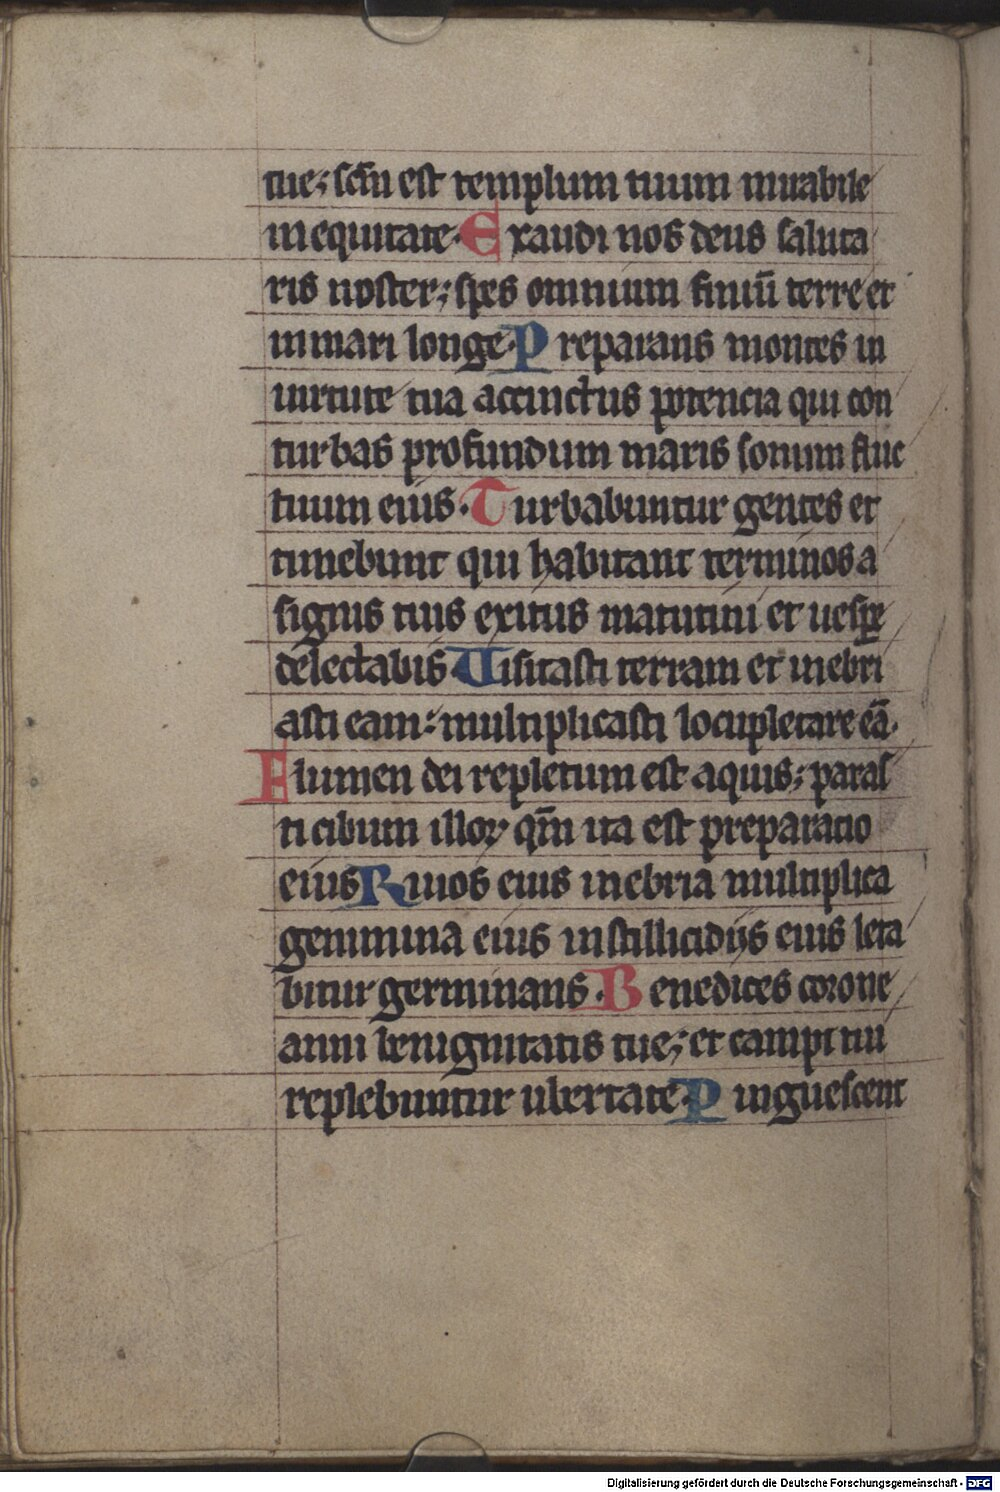 tue; scm̄ est templum tuum mirabile
in equitate. Exaudi nos deus saluta
ris noster; spes omnium finiū terre et
in mari longe. Preparans montes in
uirtute tua accinctus potencia qui con
turbas profundum maris sonum fluc
tuum eius. Turbabuntur gentes et
timebunt qui habitant terminos a
signis tuis exitus matutini et uespe
delectabis Uisitasti terram et inebri
asti eam: multiplicasti locupletare eā.
Flumen dei repletum est aquis; paras
ti cibum illoꝝ qm̄ ita est preparatio
eius Riuos eius inebria multiplica
genimina eius in stillicidijs eius leta
bitur germinans. Benedices corone
anni benignitatis tue; et campi tui
replebuntur ubertate. Pinguescent
Digitalisierung gefördert durch die Deutsche Forschungsgemeinschaft - DFG